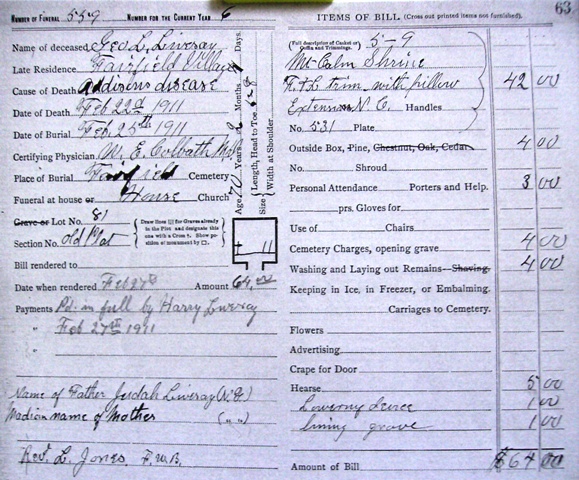 NUMBER OF FUNERAL 559 NUMBER FOR THE CURRENT YEAR 6
Name of deceased, Geo L, Liveray
Late Residence, Fairfield Village
Cause of Death addisons disease
Date of Death, Feb 22d 1911
Date of Burial, Feb 25th 1911
Certifying Physician, W. E. Colbath M.D.
Place of Burial Fairfield Cemetery
Funeral at house or House Church
Age 70 Years 2 Months Days.
Size { Length, Head to Toe
Width at Shoulder
Grave or Lot No. 81
Section No. Old Plat
Draw lines ||| for Graves already in the Plot and designate this one with a Cross †. Show position of monument by □.
Bill rendered to
Date when rendered Feb 27th Amount 64.00
Payments Pd. in full by Harry Liveray
" Feb 27th 1911
"
Name of Father Judah Liveray (N.C.)
Madian name of Mother (" ")
Rev. L. Jones. F.W.B.
63
ITEMS OF BILL. (Cross out printed items not furnished).
(Full description of Casket or Coffin and Trimmings. 5-9
Mt-Calm Shrine
F.&L Trim. with pillow 42 00
Extension N.C. Handles
No. 531 Plate
Outside Box, Pine, Chestnut, Oak, Cedar 4 00
No. Shroud
Personal Attendance Porters and Help. 3 00
prs. Gloves for
Use of Chairs
Cemetery Charges, opening grave 4 00
Washing and Laying out Remains Shaving. 4 00
Keeping in Ice, in Freezer, or Embalming.
Carriages to Cemetery.
Flowers
Advertising
Crape for Door
Hearse 5 00
Lowering device 1 00
Lining grave 1 00
Amount of Bill $64 00